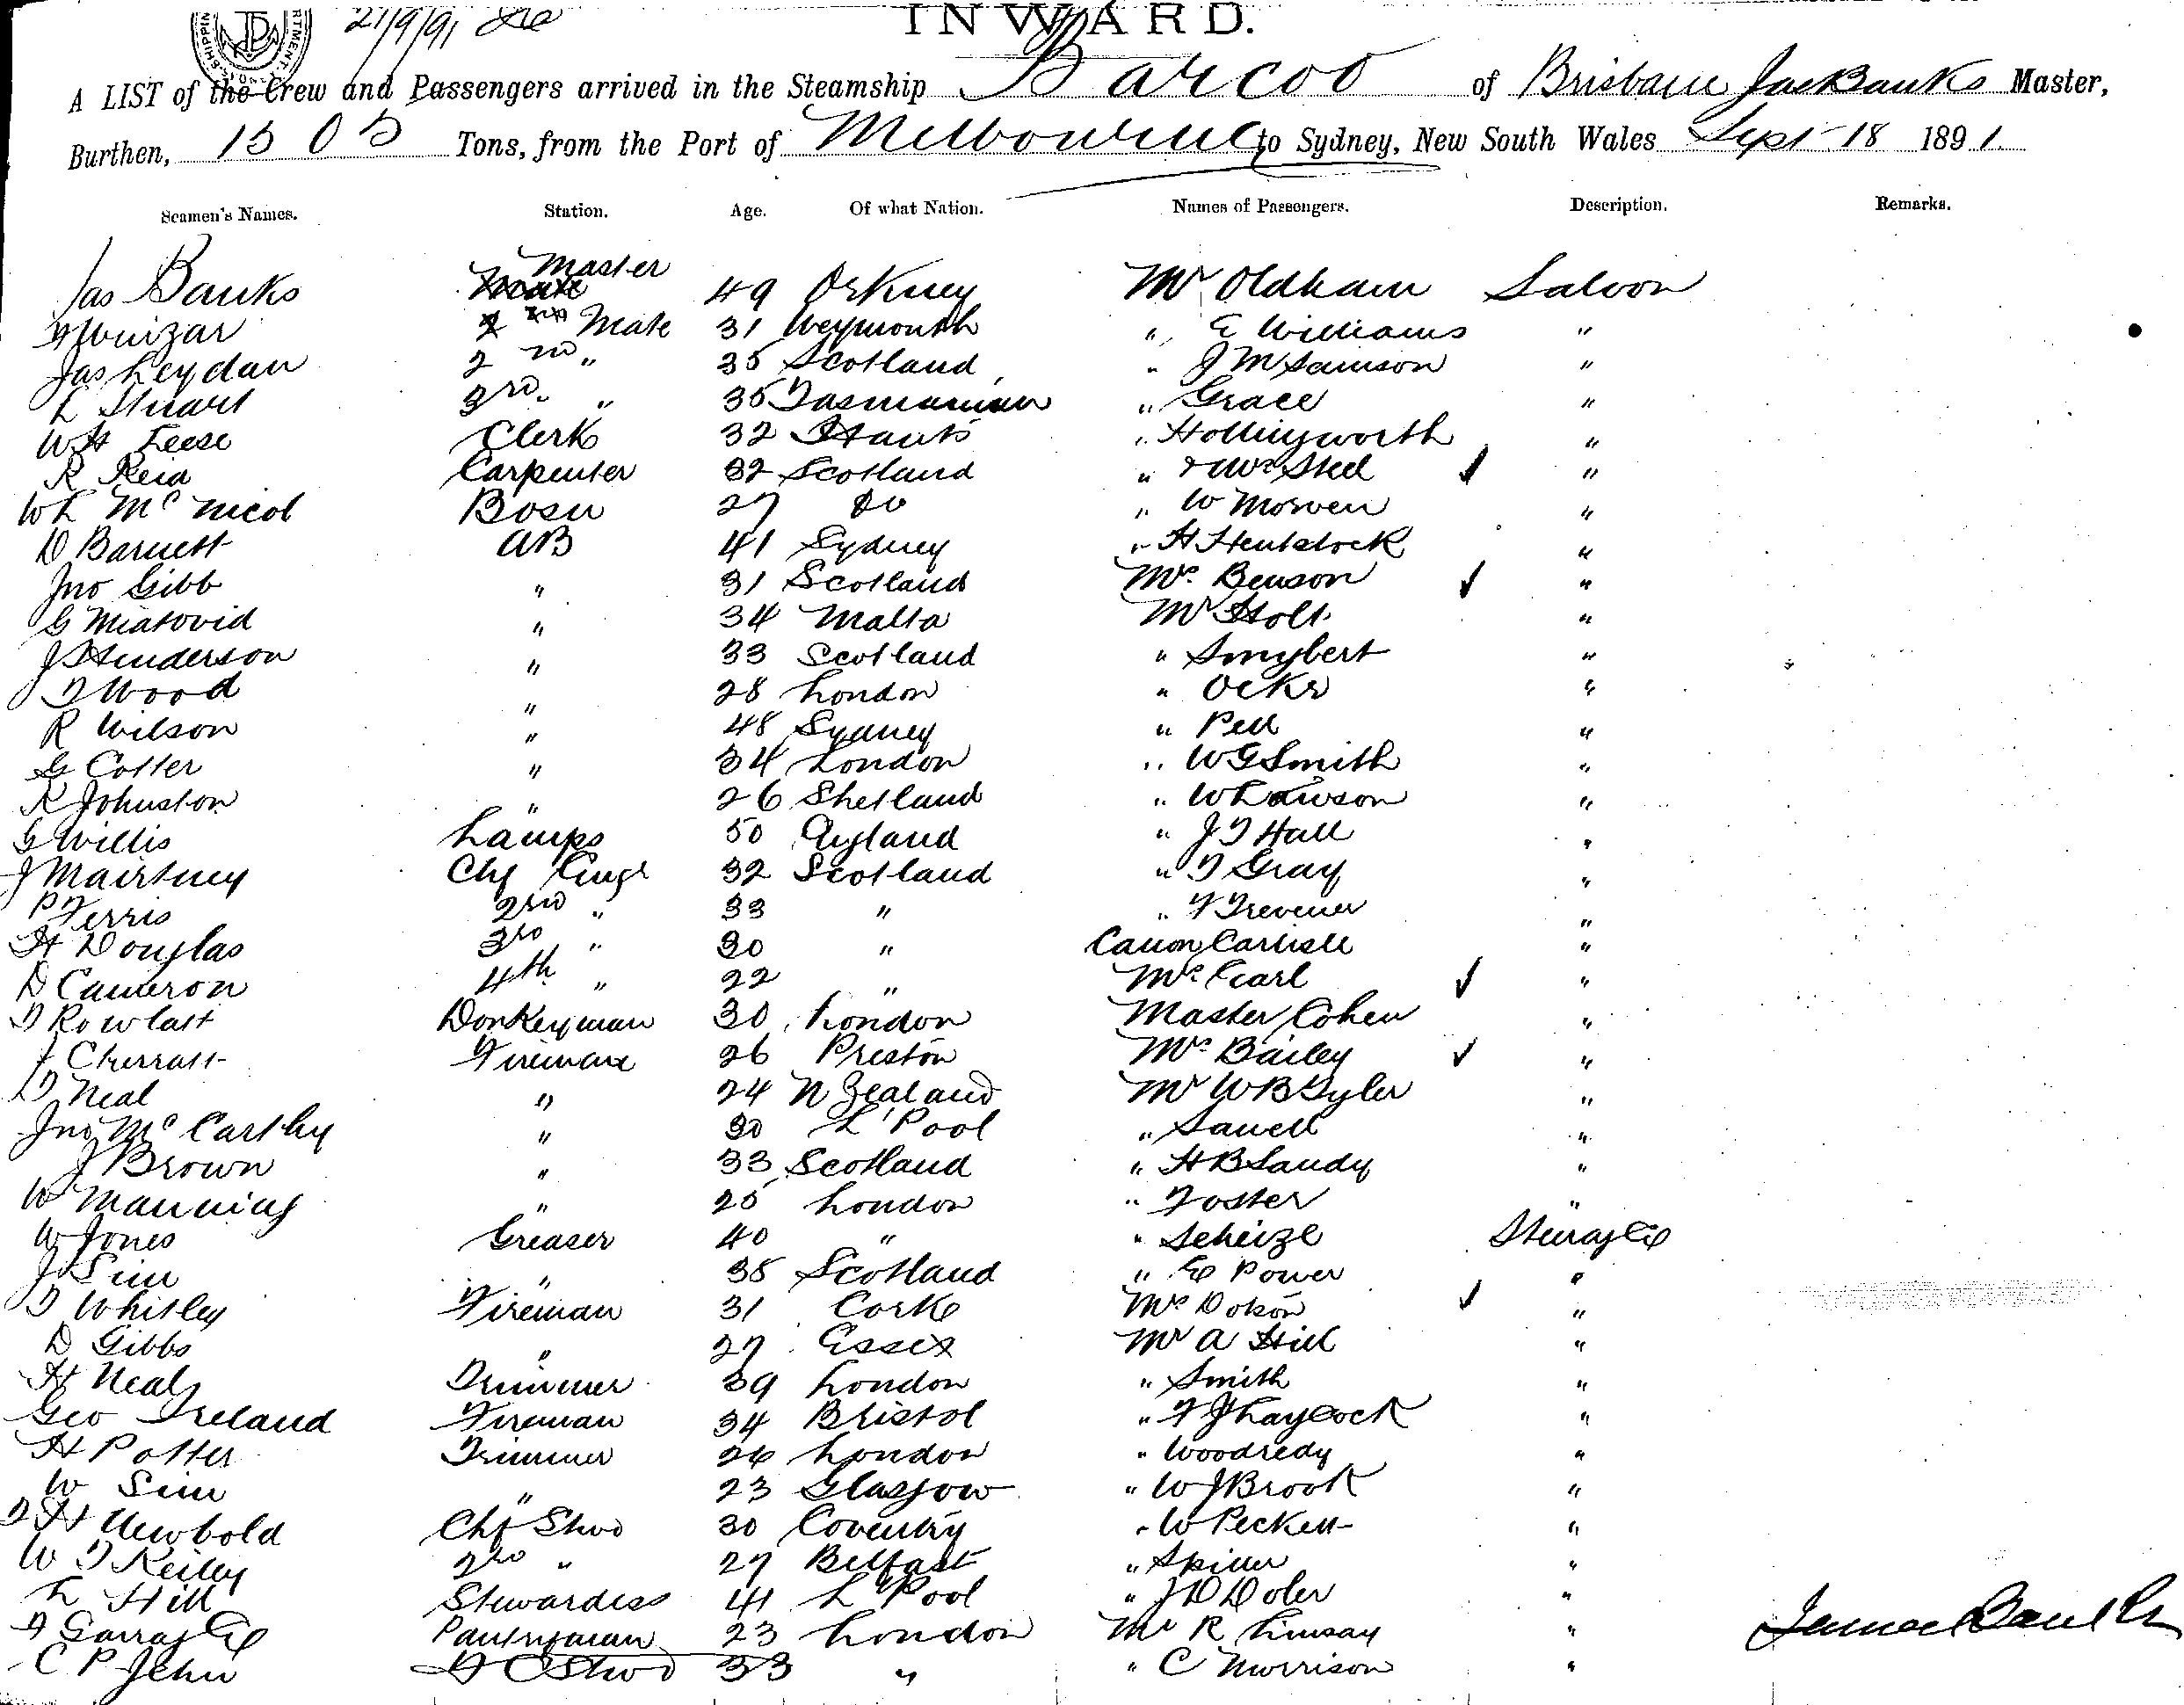 21/9/91
INWARD.
A LIST of the Crew and Passengers arrived in the Steamship Barcoo of Brisbane Jas Banks Master,
Burthen, 1505 Tons, from the Port of Melbourne to Sydney, New South Wales Sept 18 1891.
Seamen's Names. Station. Age. Of what Nation. Names of Passengers. Description. Remarks.
Jas Banks Master 49 Orkney Mr Oldham Saloon
Mate 31 Weymouth " E Williams "
Jas Leydan 2nd " 35 Scotland " J M Samson "
L Stuart 3rd " 35 Tasmanian " Grace "
W H Leese Clerk 32 Hants " Hollingworth "
R Reid Carpenter 32 Scotland " & Mrs Steel "
W L McNicol Bosn 27 Do " W Morven "
D Barnett AB 41 Sydney " H Hentstock "
Jno Gibb " 31 Scotland Mrs Benson "
G Miatovid " 34 Malta Mr Holt "
J Henderson " 33 Scotland " Smybert "
T Wood " 28 London " Ocks "
R Wilson " 48 Sydney " Pell "
G Cotter " 34 London " W G Smith "
R Johnston " 26 Shetland " W Lawson "
G Willis Lamps 50 England " J T Hall "
J Mairtney Chf Engr 32 Scotland " T Gray "
P Ferris 2nd " 33 " " F Trevener "
H Douglas 3rd " 30 " Canon Carlisle "
D Cameron 4th " 22 " Mrs Earl "
T Rowlatt Donkeyman 30 London Master Cohen "
J Cherratt Fireman 26 Preston Mrs Bailey "
T Neal " 24 N Zealand Mr W B Tyler "
Jno McCarthy " 30 L'Pool " Sawell "
J Brown " 33 Scotland " H B Landy "
W Manning " 25 London " Foster "
W Jones Greaser 40 " " Scheizl Steerage
J Sim " 35 Scotland " E Power "
T Whitley Fireman 31 Cork Mrs Dobson "
D Gibbs " 27 Essex Mr A Hill "
H Neal Trimmer 39 London " Smith "
Geo Ireland Fireman 34 Bristol " F J Laycock "
H Potter Trimmer 26 London " Woodredy "
W Sim " 23 Glasgow " W J Brook "
T H Newbold Chf Stwd 30 Coventry " W Peckett "
W T Keiley 2nd " 27 Belfast " Spiller "
L Hill Stewardess 41 L'Pool " J D Doler "
T Garrag Pantryman 23 London Mr R Limsay " James Banks
C P John F C Stwd 33 " " C Morrison "